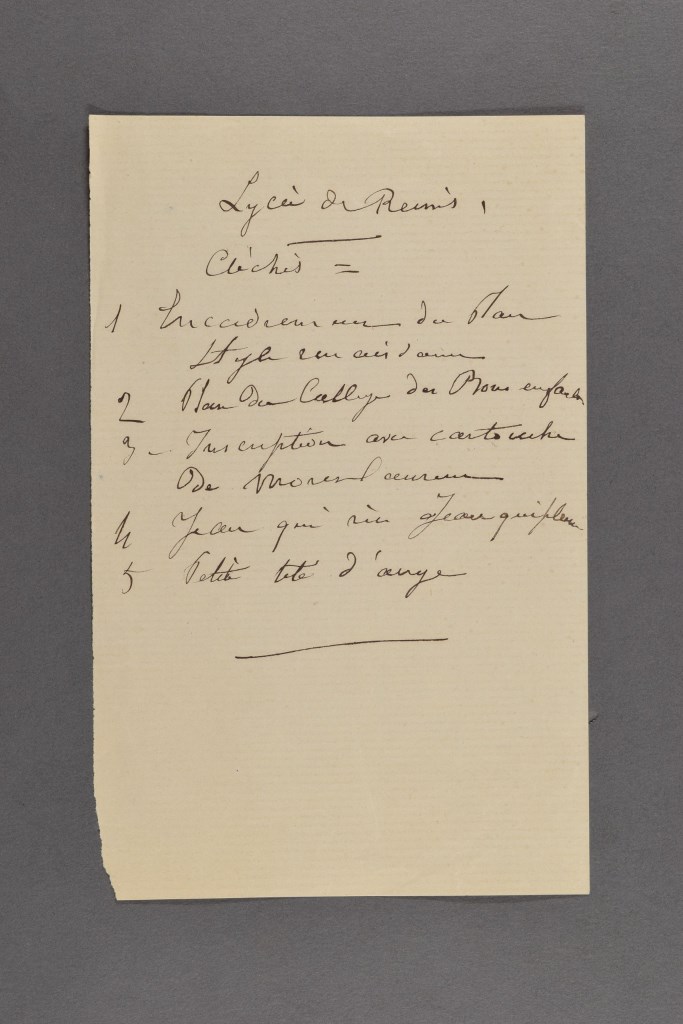 Lycée de Reims,
Clichés =
1 Encadrement du Plan
Style renaissance
2 Plan du College des Bons enfants
3 - Inscription avec cartouche
De
4 Jean qui rit Jean qui pleure
5 Petite tête d'ange